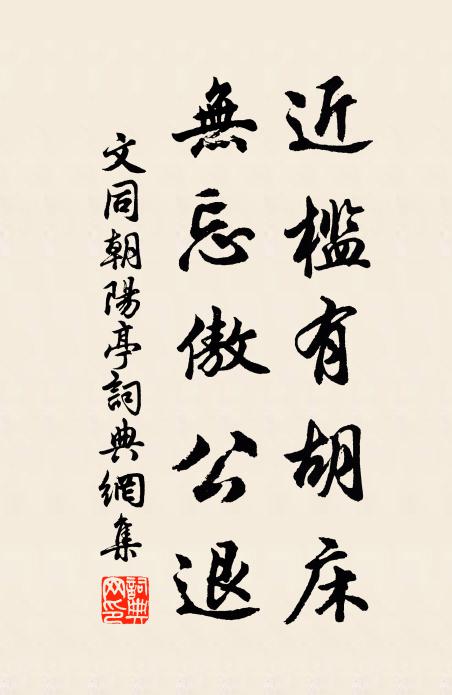 近檻有胡床
無忘傲公退
文同朝陽亭詞典網集
詞典網印